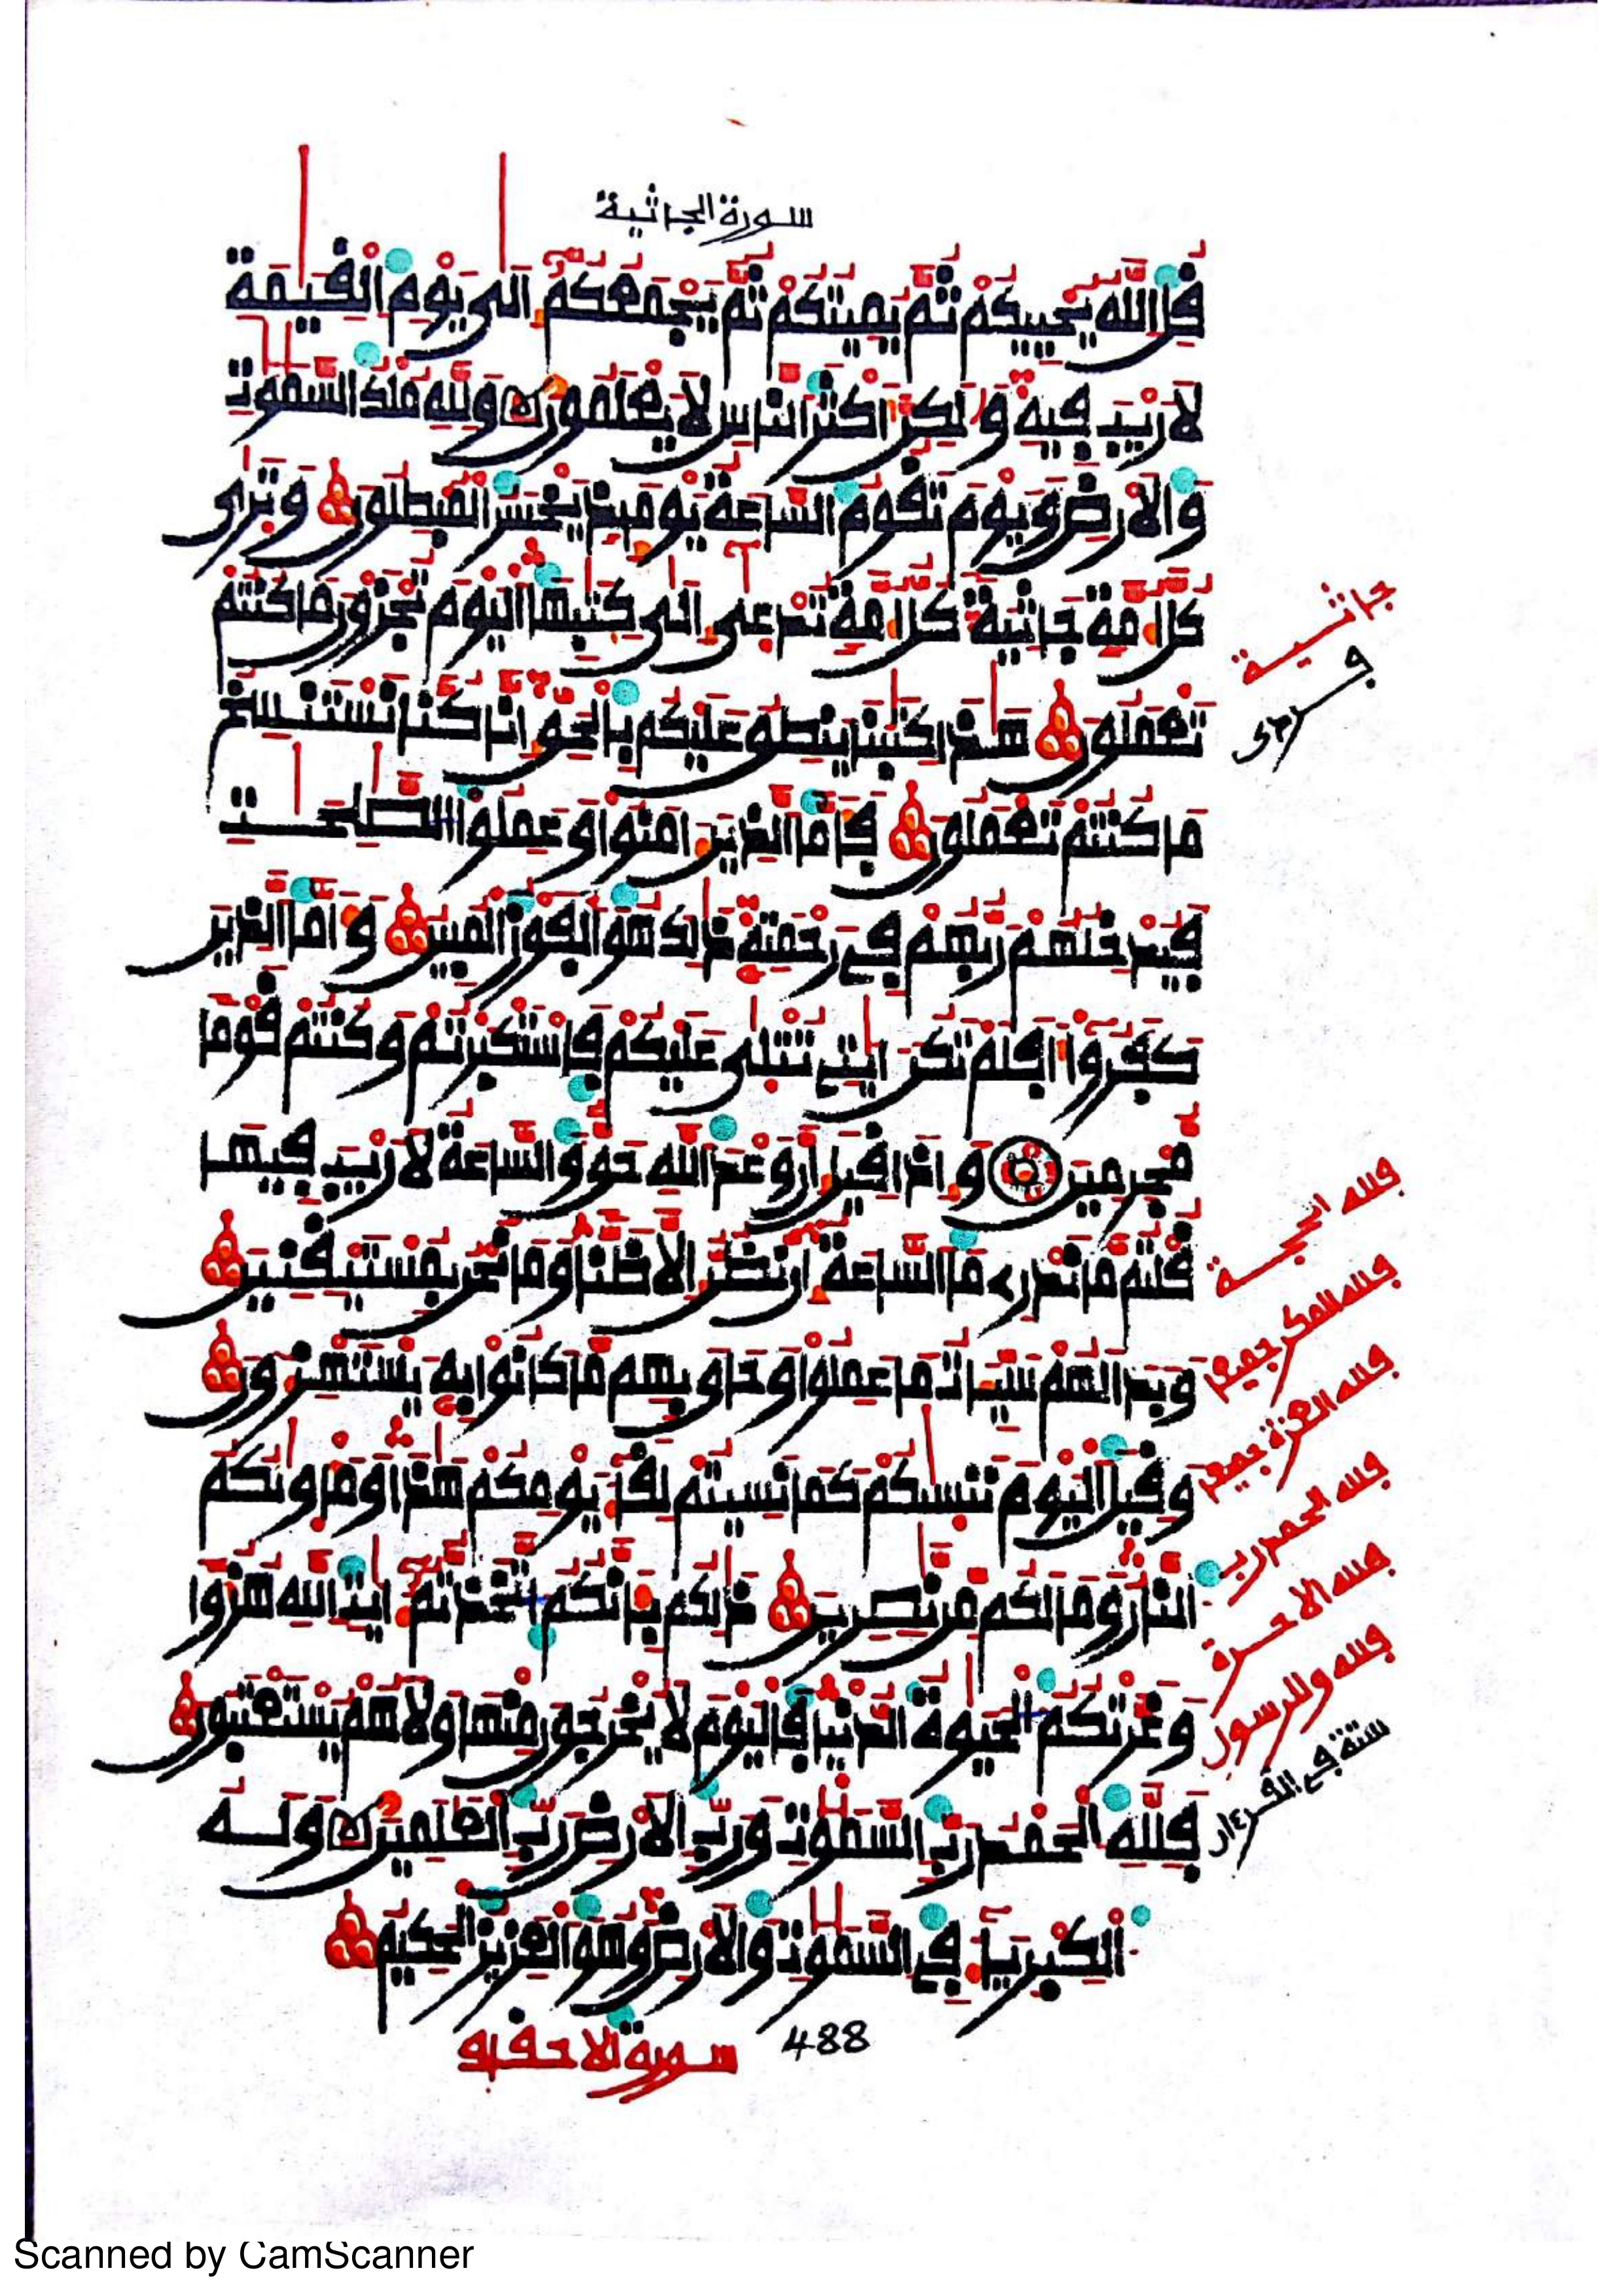 سورة الجاثية
قل الله يحييكم ثم يميتكم ثم يجمعكم إلى يوم القيمة
لا ريب فيه ولكن أكثر الناس لا يعلمون ولله ملك السموت
والارض ويوم تقوم الساعة يومئذ يخسر المبطلون وترى
كل أمة جاثية كل أمة تدعى إلى كتبها اليوم تجزون ما كنتم
تعملون هذا كتبنا ينطق عليكم بالحق إنا كنا نستنسخ
ما كنتم تعملون فأما الذين امنوا وعملوا الصلحت
فيدخلهم ربهم في رحمته ذلك هو الفوز المبين وأما الذين
كفروا أفلم تكن ايتي تتلى عليكم فاستكبرتم وكنتم قوما
مجرمين وإذا قيل إن وعد الله حق والساعة لا ريب فيها
قلتم ما ندري ما الساعة إن نظن إلا ظنا وما نحن بمستيقنين
وبدا لهم سيئات ما عملوا وحاق بهم ما كانوا به يستهزءون
وقيل اليوم ننسيكم كما نسيتم لقاء يومكم هذا ومأويكم
النار وما لكم من نصرين ذلكم بأنكم اتخذتم ايت الله هزؤا
وغرتكم الحيوة الدنيا فاليوم لا يخرجون منها ولا هم يستعتبون
فلله الحمد رب السموت ورب الارض رب العلمين وله
الكبرياء في السموت والارض وهو العزيز الحكيم
سورة الاحقاف 488
جاثية
فلله الحجة
فلله المكر جميعا
فلله العزة جميعا
فلله الحمد رب
فلله الاخرة
فلله وللرسول
ستة في القرءان
Scanned by CamScanner